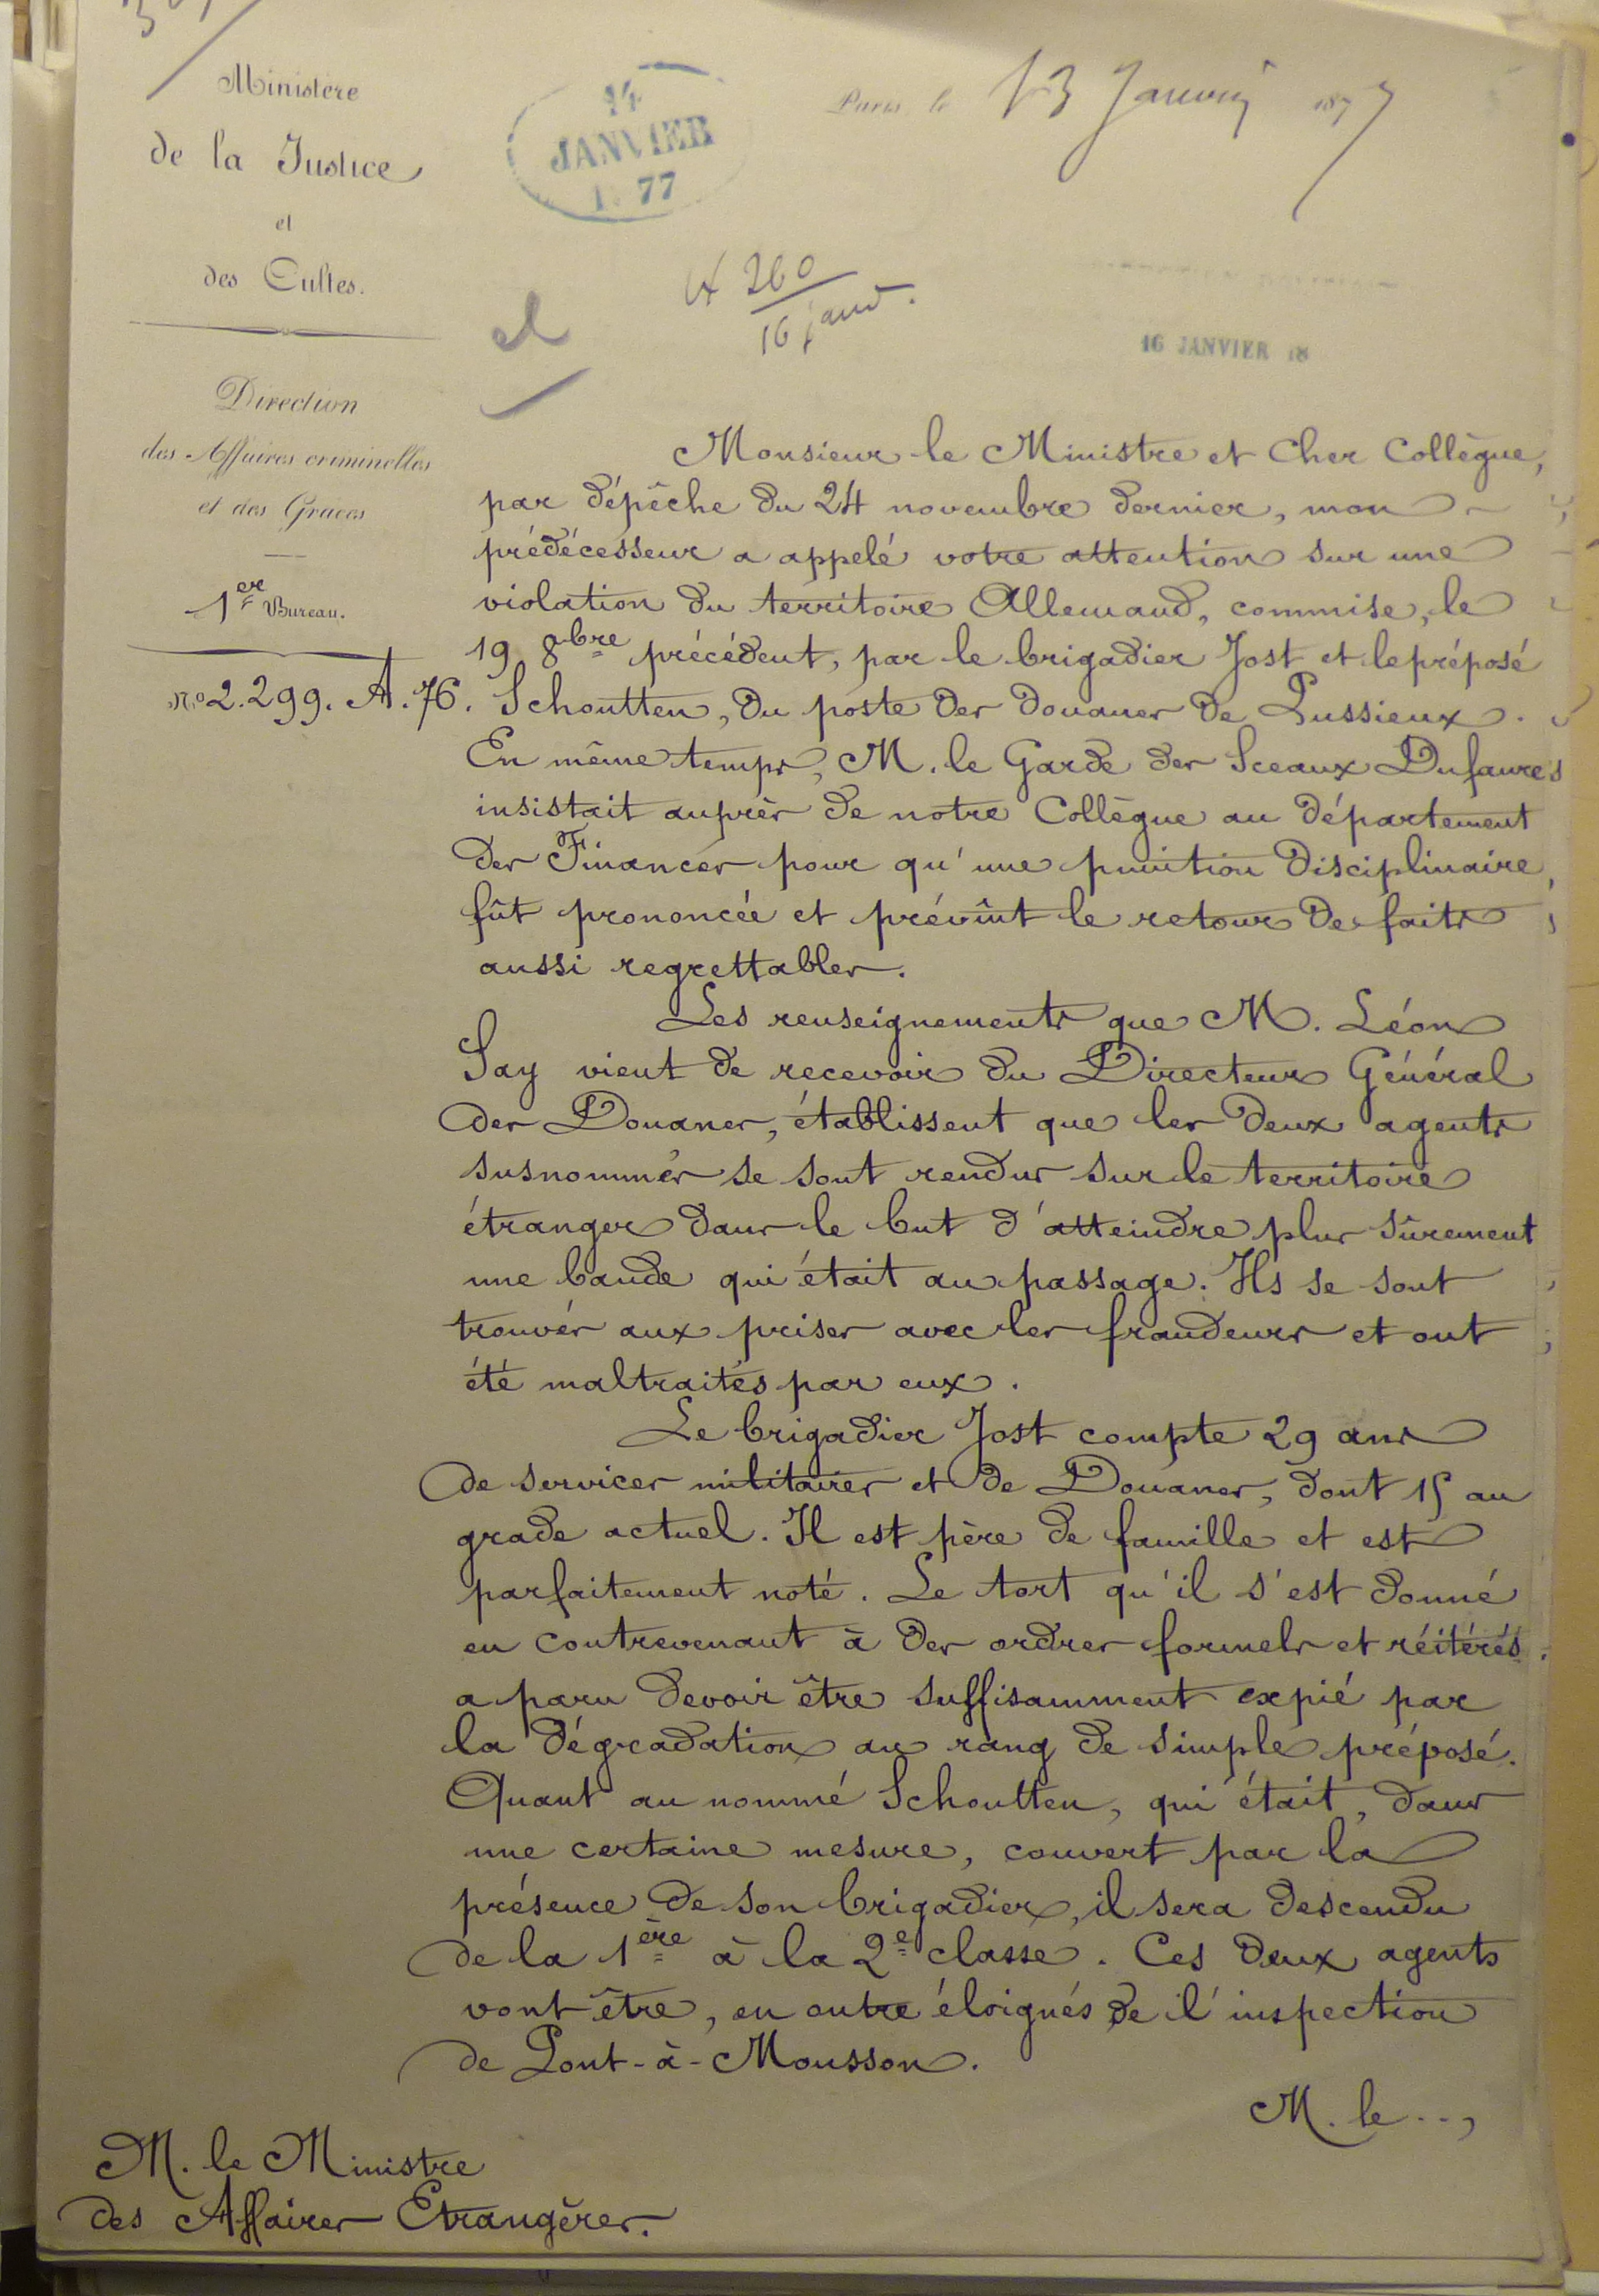 Ministère
de la Justice
et
des Cultes.
Direction
des Affaires criminelles
et des Grâces
1er Bureau.
No 2.299. A. 76.
14
JANVIER
1 77
Paris le 13 Janvier 1877
260
16 janv.
16 JANVIER 18
Monsieur le Ministre et Cher Collègue,
par dépêche du 24 novembre dernier, mon
prédécesseur a appelé votre attention sur une
violation du territoire Allemand, commise, le
19 8bre précédent, par le brigadier Jost et le préposé
Schoutten, du poste des douanes de Lussieux.
En même temps, M. le Garde des Sceaux Dufaure
insistait auprès de notre Collègue au département
des Finances pour qu'une punition disciplinaire
fût prononcée et prévînt le retour de faits
aussi regrettables.
Les renseignements que M. Léon
Say vient de recevoir du Directeur Général
des Douanes, établissent que les deux agents
susnommés se sont rendus sur le territoire
étranger dans le but d'atteindre plus sûrement
une bande qui était au passage. Ils se sont
trouvés aux prises avec les fraudeurs et ont
été maltraités par eux.
Le brigadier Jost compte 29 ans
de services militaires et de Douanes, dont 15 au
grade actuel. Il est père de famille et est
parfaitement noté. Le tort qu'il s'est donné
en contrevenant à des ordres formels et réitérés
a paru devoir être suffisamment expié par
la dégradation au rang de simple préposé.
Quant au nommé Schoutten, qui était, dans
une certaine mesure, couvert par la
présence de son brigadier, il sera descendu
de la 1ère à la 2e classe. Ces deux agents
vont être, en outre éloignés de l'inspection
de Pont-à-Mousson.
M. le ..,
M. le Ministre
des Affaires Etrangères.